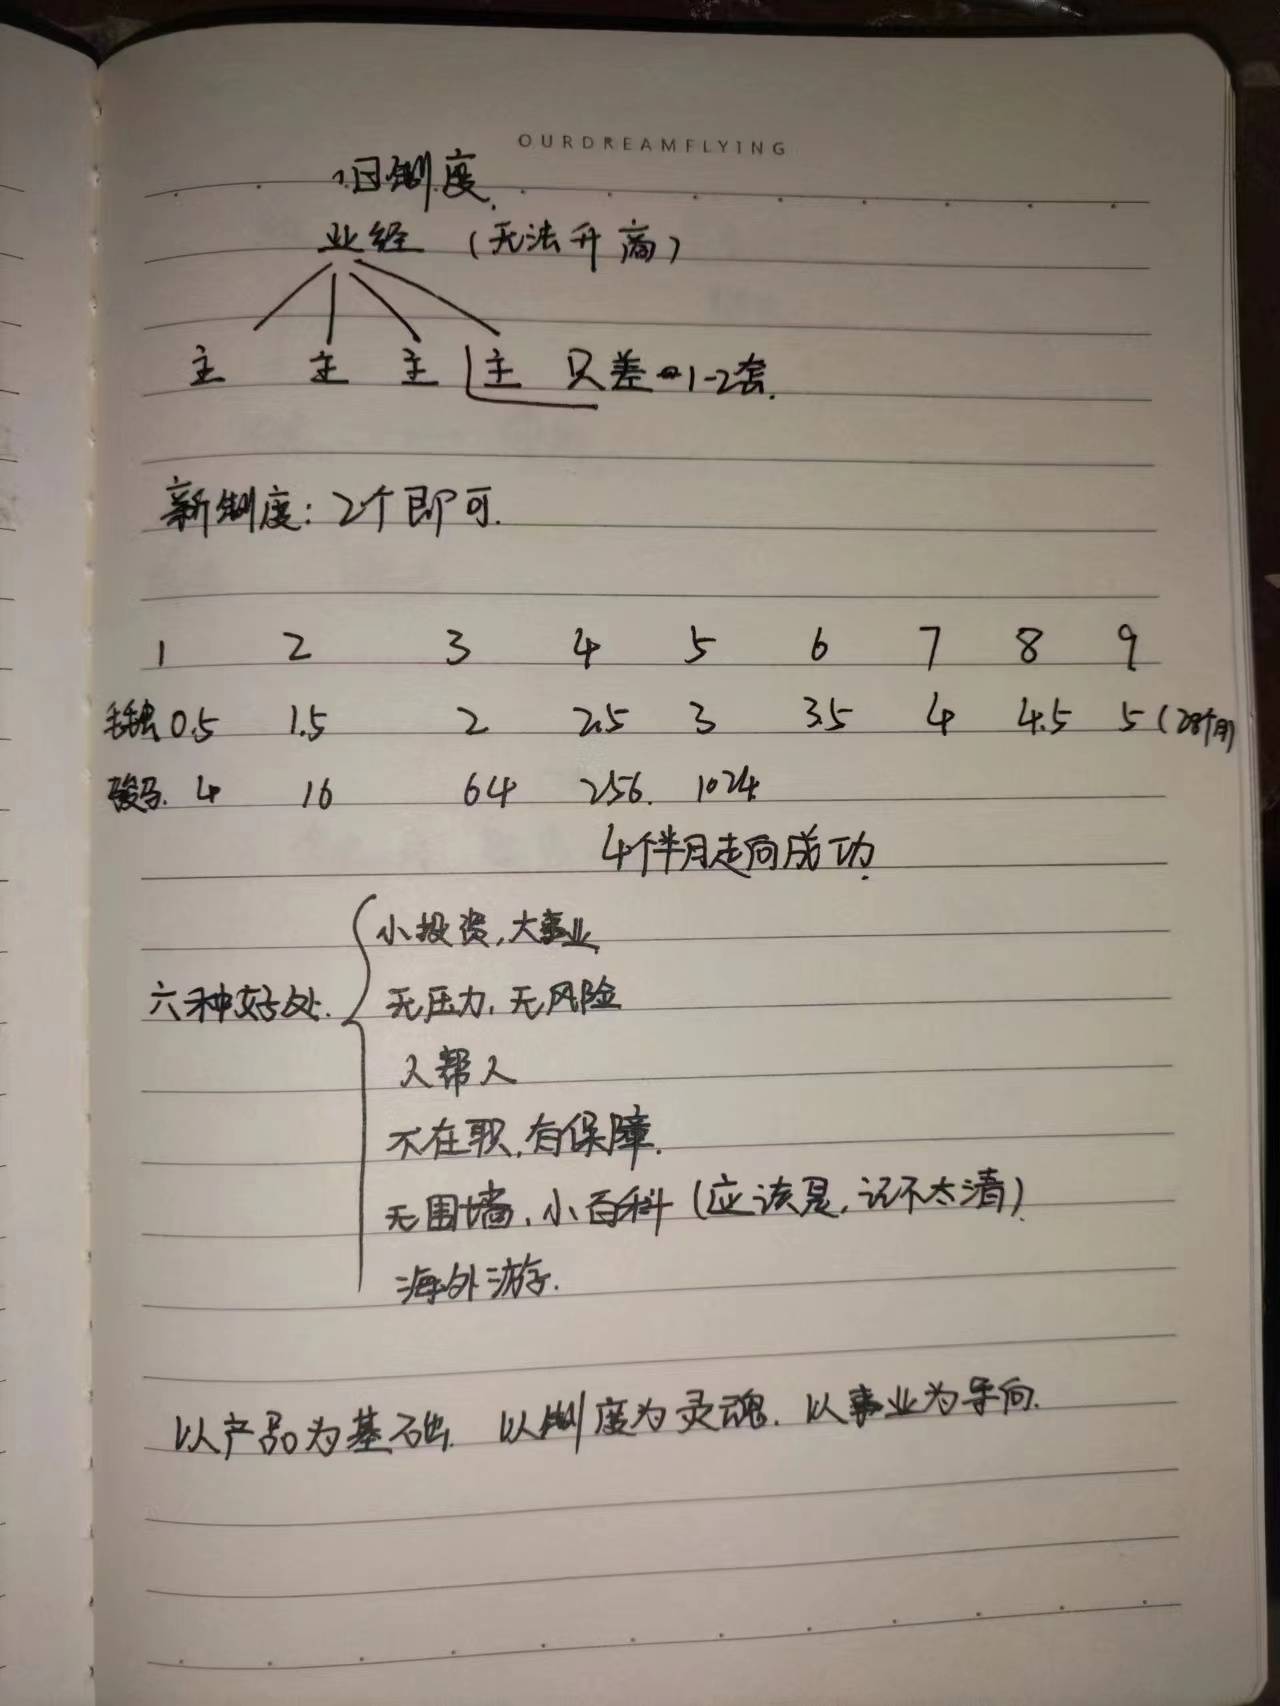 OURDREAMFLYING
旧制度.
业经 (无法升高)
主 主 主 主 只差1-2套.
新制度: 2个即可.
1 2 3 4 5 6 7 8 9
毛虫 0.5 1.5 2 2.5 3 3.5 4 4.5 5 (28个月)
骏马. 4 16 64 256. 1024
4个半月走向成功.
小投资, 大事业
六种好处. 无压力, 无风险
人帮人
不在职, 有保障.
无围墙, 小百科 (应该是, 记不太清).
海外游.
以产品为基础. 以制度为灵魂. 以事业为导向.